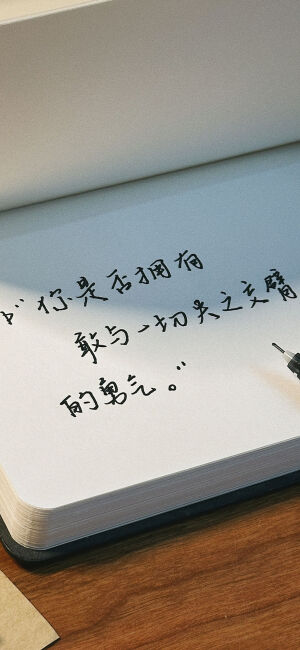 “你是否拥有
敢与一切失之交臂
的勇气。”